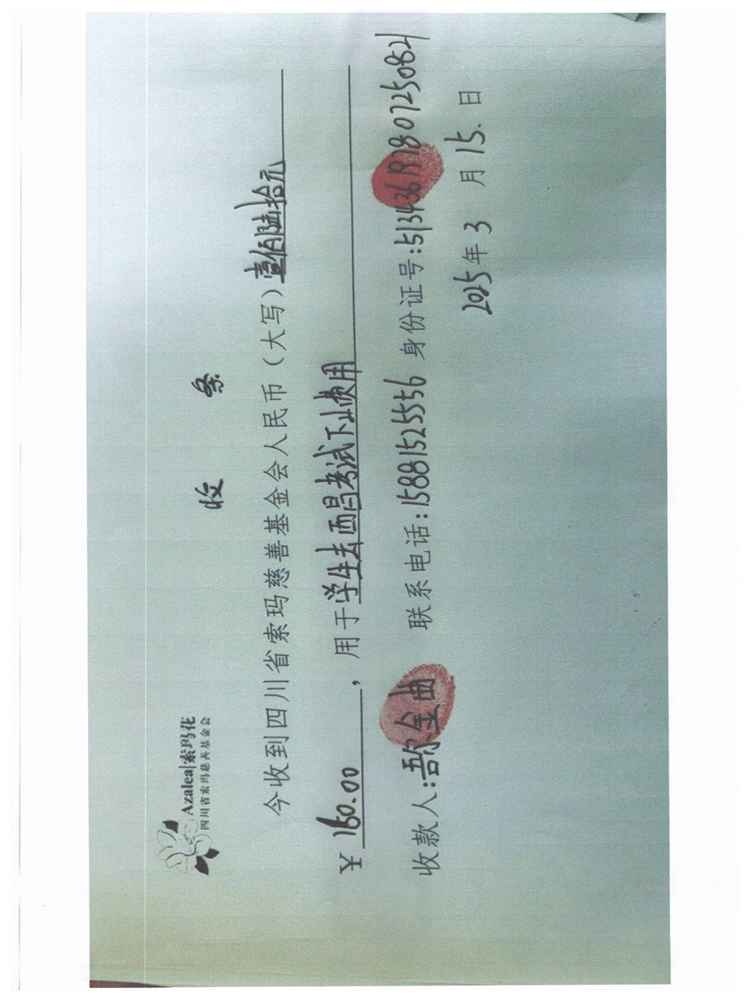 Azalea|索玛花
四川省索玛慈善基金会
收 条
今收到四川省索玛慈善基金会人民币（大写）壹佰陆拾元
￥160.00，用于学生去西昌考试下山使用
收款人:吾尔金曲 联系电话:15881525556 身份证号:513436197807250821
2025年3月15.日